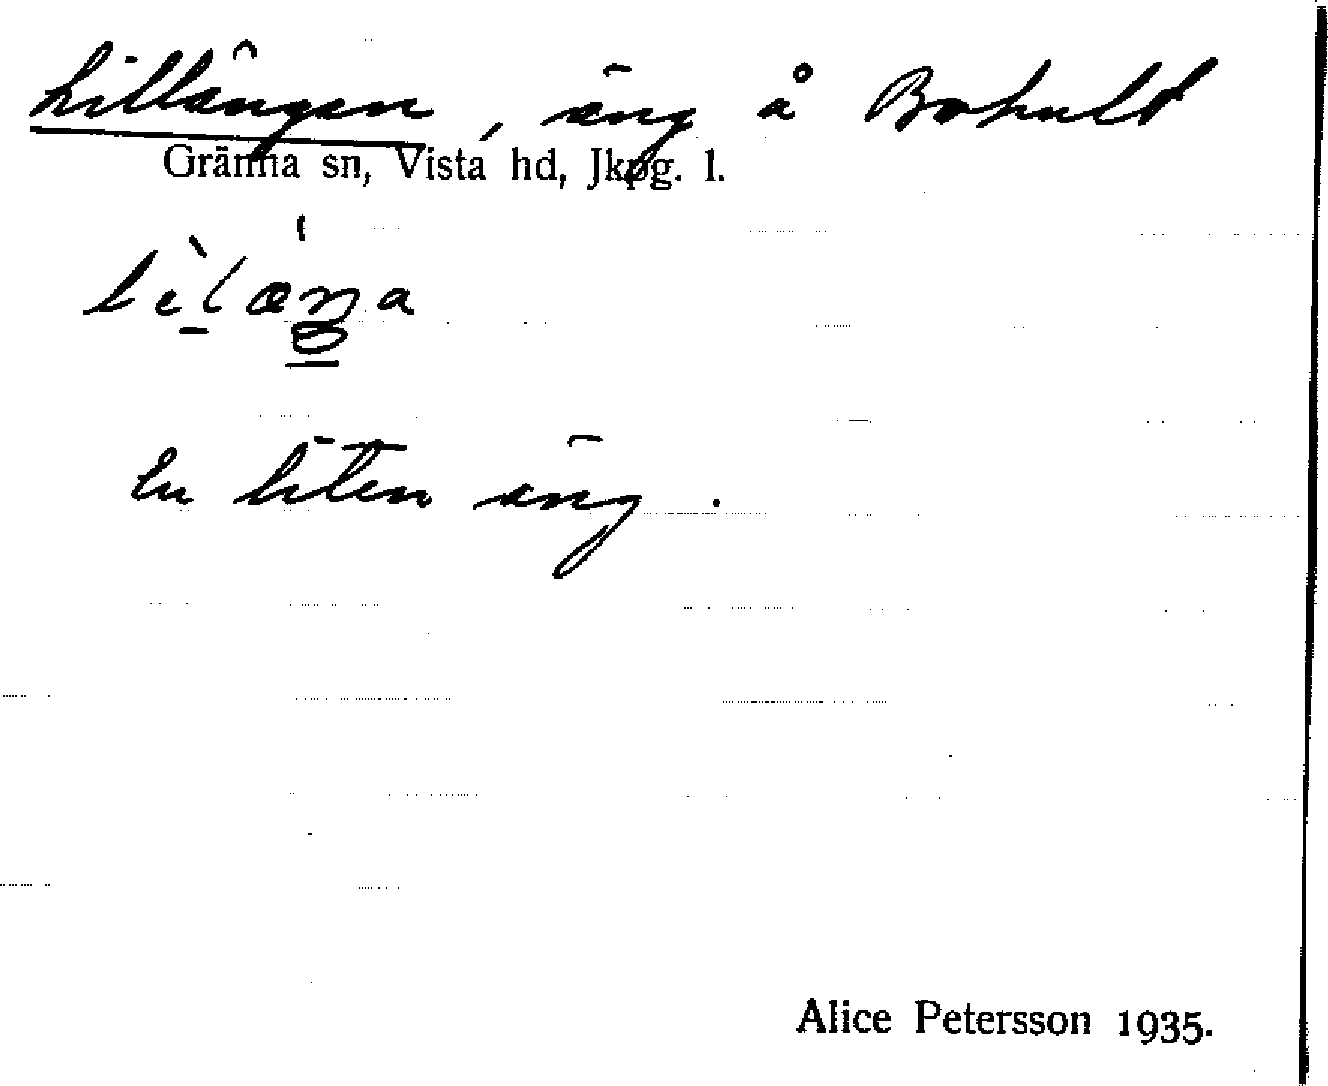 Lillängen, äng å Bohult
Gränna sn, Vista hd, Jkpg. l.
En liten äng.
Alice Petersson 1935.